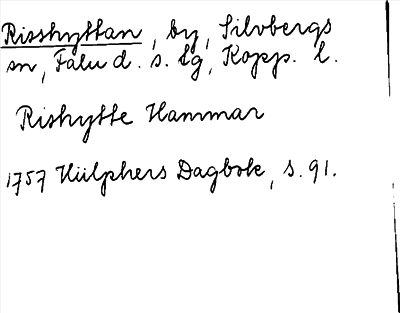 Risshyttan, by, Silvbergs
sn, Falu d. s. lg, Kopp. l.
Rishytte Hammar
1757 Hülphers Dagbok, s. 91.